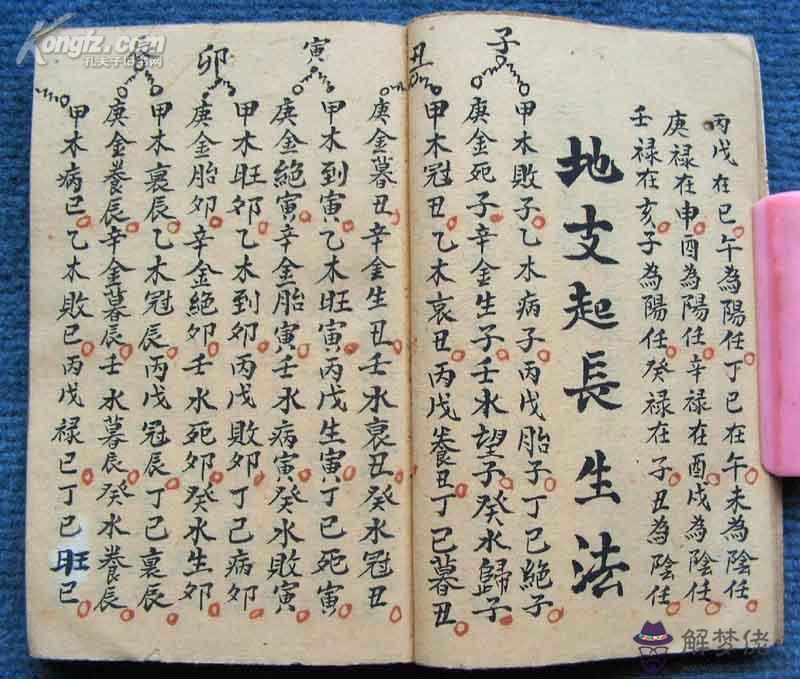 丙戊在巳午為陽任丁巳在午未為陰任
庚禄在申酉為陽任辛禄在酉戌為陰任
壬禄在亥子為陽任癸禄在子丑為陰任
地支起長生法
子
甲木敗子乙木病子丙戊胎子丁巳絕子
庚金死子辛金生子壬水望子癸水歸子
丑
甲木冠丑乙木哀丑丙戊養丑丁巳暮丑
庚金暮丑辛金生丑壬水哀丑癸水冠丑
寅
甲木到寅乙木旺寅丙戊生寅丁巳死寅
庚金絕寅辛金胎寅壬水病寅癸水敗寅
卯
甲木旺卯乙木到卯丙戊敗卯丁巳病卯
庚金胎卯辛金絕卯壬水死卯癸水生卯
甲木裏辰乙木冠辰丙戊冠辰丁巳裏辰
庚金養辰辛金暮辰壬水暮辰癸水養辰
甲木病巳乙木敗巳丙戊禄巳丁巳旺巳
Kongfz.com
孔夫子旧书网
解梦佬